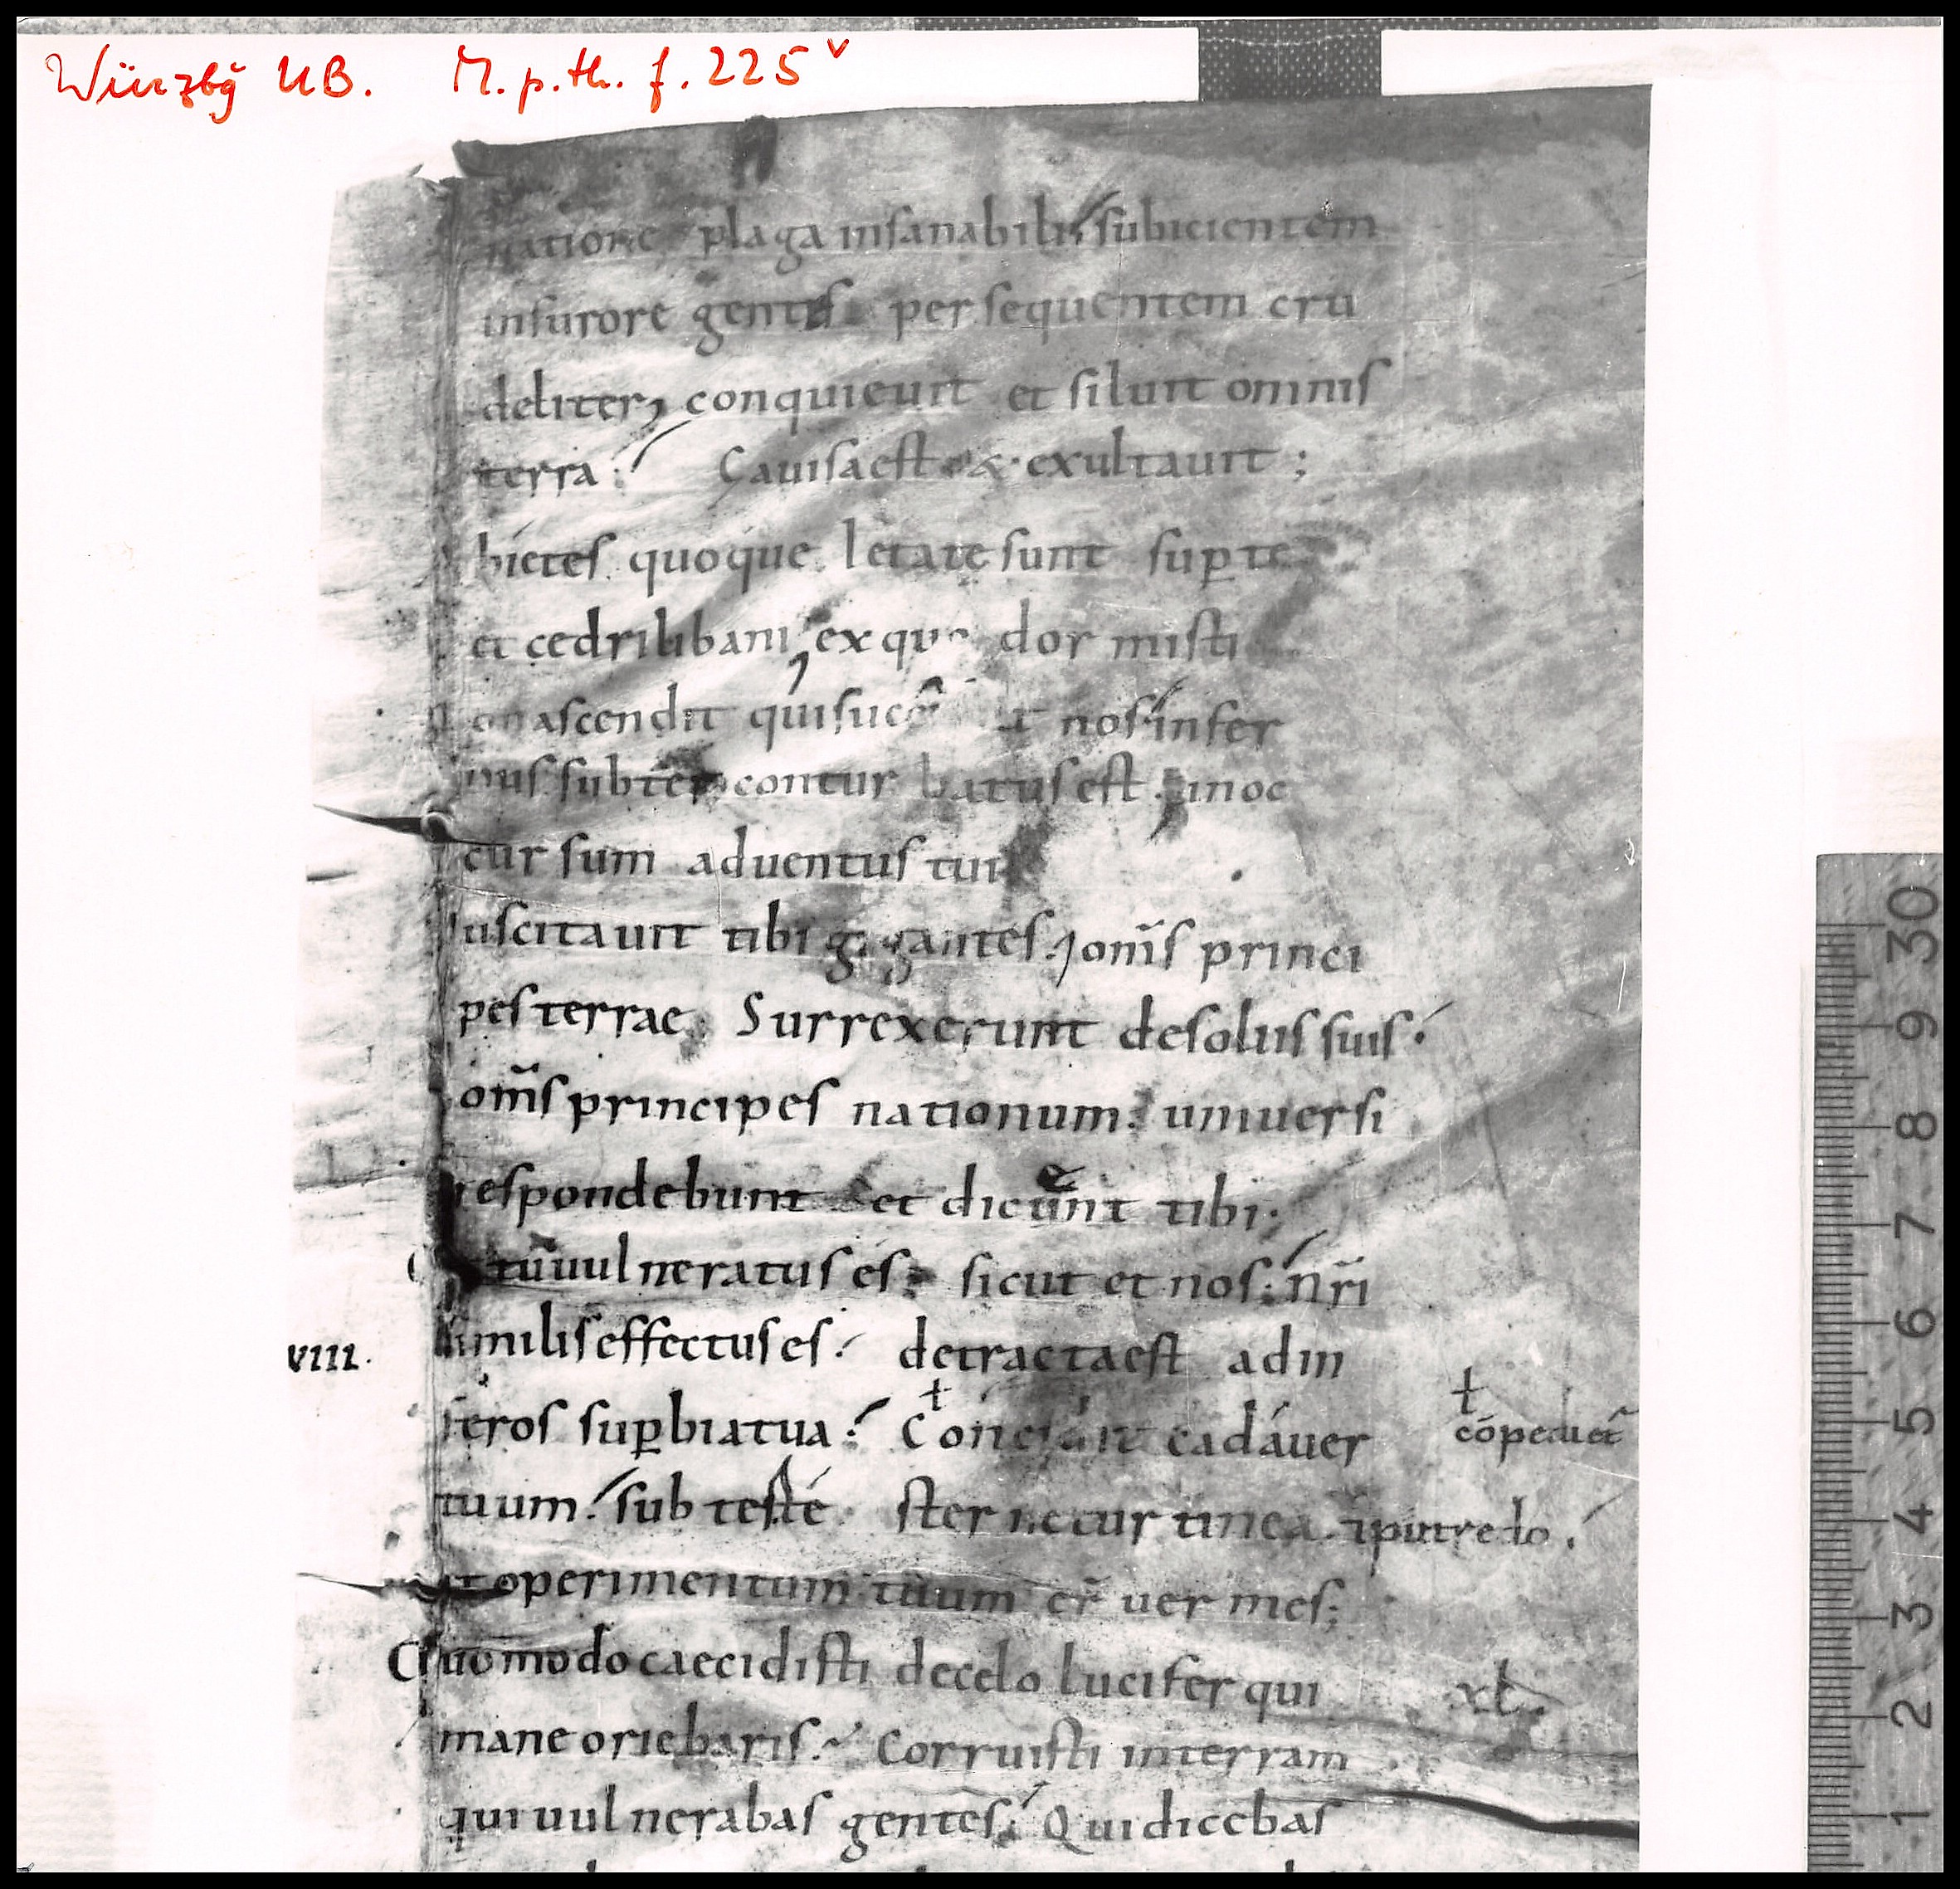 Würzbg UB. M. p. th. f. 225v
natione plaga insanabili, subicientem
infurore gentes persequentem cru
deliter, conquieuit et siluit omnis
terra: Gauisaest & exultauit;
bietes quoque letate sunt sup te
et cedri libani, ex quo dormisti
on ascendit qui suc nos infer
nus subter conturbatus est. inoc
cursum aduentus tui
suscitauit tibi gigantes. oms princi
pes terrae. Surrexerunt desoliis suis.
oms principes nationum. uniuersi
respondebunt et dicunt tibi.
tu uulneratus es. sicut et nos. nri
viii. similis effectus es. detracta est adin
feros supbiatua. Concidit cadáuer
tuum. sub te sternetur tinea. putredo.
et operimentum tuum er uermes;
Quomodo caecidisti decelo lucifer qui
mane oriebaris. Corruisti interram
qui uulnerabas gentes. Qui dicebas
30
9
8
7
6
5
4
3
2
1